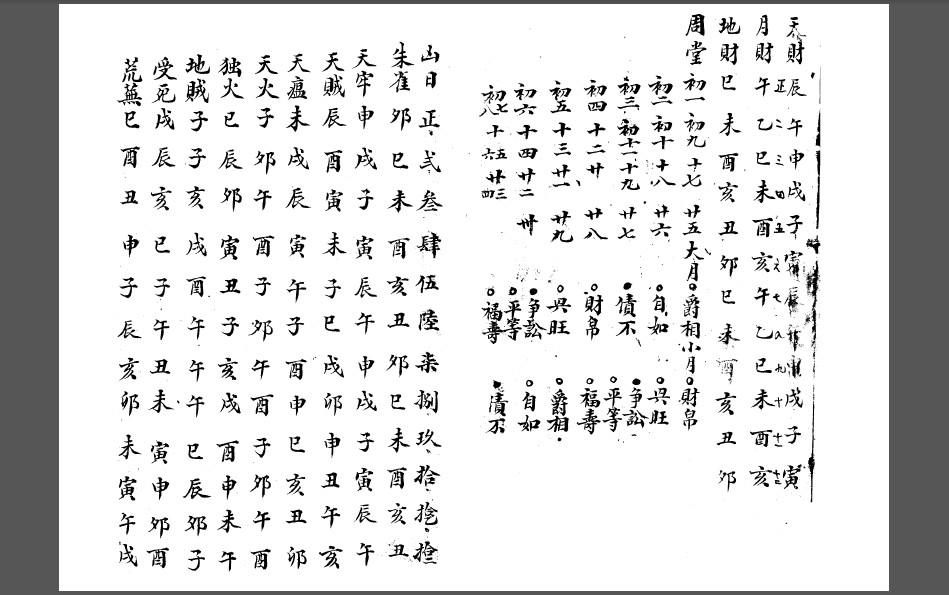 天財 辰 午 申 戌 子 寅 辰 午 申 戌 子 寅
正 二 三 四 五 六 七 八 九 十 十一 十二
月財 午 乙 巳 未 酉 亥 午 乙 巳 未 酉 亥
地財 巳 未 酉 亥 丑 卯 巳 未 酉 亥 丑 卯
周堂 初一 初九 十七 廿五 大月 爵相 小月 財帛
初二 初十 十八 廿六 自如 興旺
初三 初十一 十九 廿七 債不 争訟
初四 十二 廿 廿八 財帛 平等
初五 十三 廿一 廿九 興旺 福壽
初六 十四 廿二 卅 争訟 爵相
初七 十五 廿三 平等 自如
初八 十六 廿四 福壽 債不
山日 正 弍 叁 肆 伍 陸 柒 捌 玖 拾
朱雀 卯 巳 未 酉 亥 丑 卯 巳 未 酉 亥 丑
天牢 申 戌 子 寅 辰 午 申 戌 子 寅 辰 午
天賊 辰 酉 寅 未 子 巳 戌 卯 申 丑 午 亥
天瘟 未 戌 辰 寅 午 子 酉 申 巳 亥 丑 卯
天火 子 卯 午 酉 子 卯 午 酉 子 卯 午 酉
独火 巳 辰 卯 寅 丑 子 亥 戌 酉 申 未 午
地賊 子 子 亥 戌 酉 午 午 午 巳 辰 卯 子
受死 戌 辰 亥 巳 子 午 丑 未 寅 申 卯 酉
荒蕪 巳 酉 丑 申 子 辰 亥 卯 未 寅 午 戌